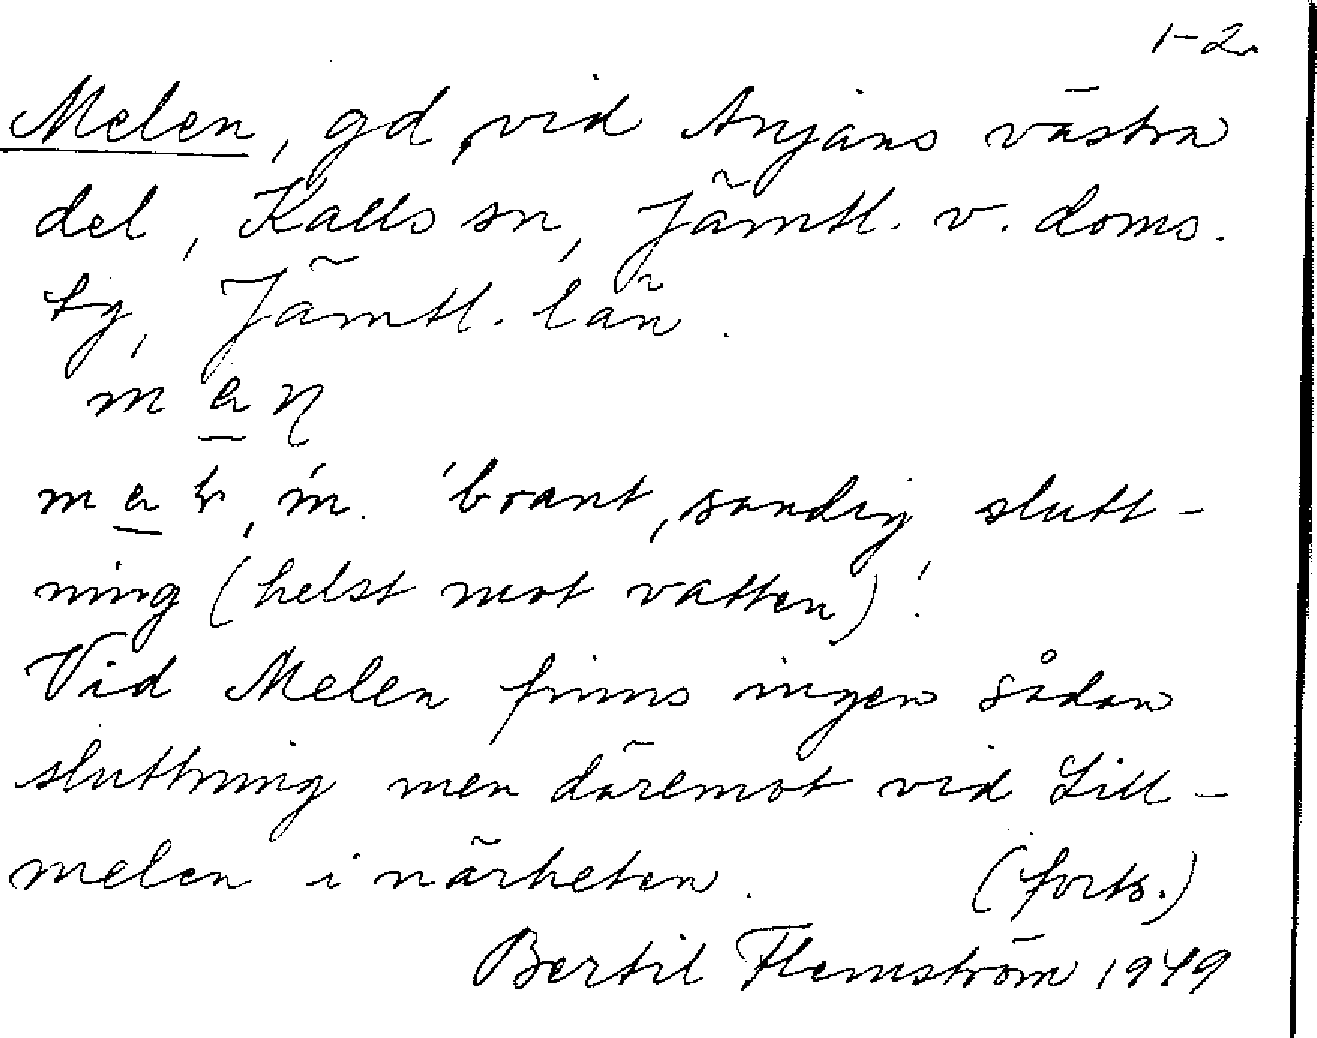 1-2.
Melen, gd, vid Anjans västra
del, Kalls sn, Jämtl. v. doms.
sg, Jämtl. län.
m
m, m. 'brant, sandig slutt-
ning (helst mot vatten)'.
Vid Melen finns ingen sådan
sluttning men däremot vid Lill-
melen i närheten. (forts.)
Bertil Flemström 1949